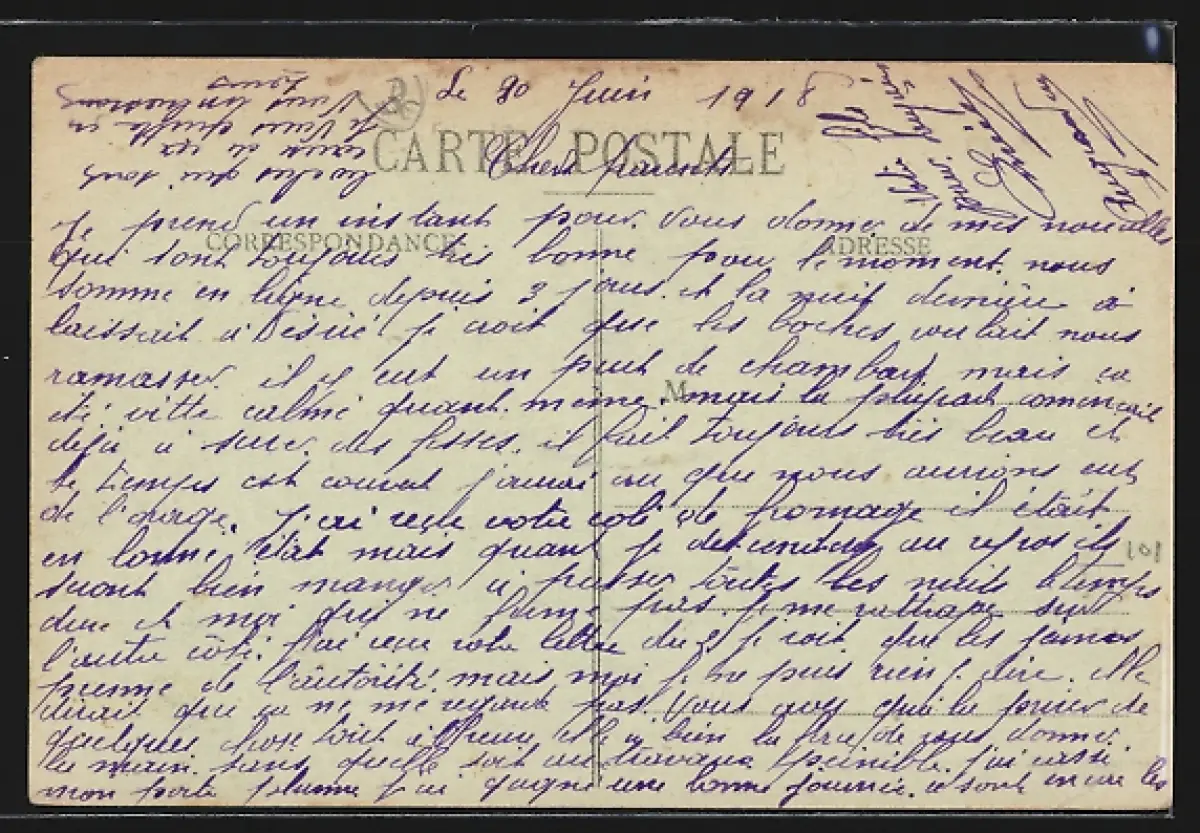 Le 20 Juin 1918
CARTE POSTALE
Chers parents
Je prend un instant pour vous donner de mes nouvelles
CORRESPONDANCE
ADRESSE
qui sont toujours très bonne pour le moment. nous
somme en ligne depuis 3 jours. et la nuit dernière à
laissait à Désiré je croit que les boches voulait nous
ramasser. il y eut un peut de chambard mais ça
M
été vitte calmé quant même. mais la plupart commencait
déjà à des fesses. il fait toujours très beau et
le temps est couvert jamais que nous aurions eut
de l'orage. J'ai reçu votre coli de fromage il était
en bonne état mais quant je descendrai au repos ils
seront bien manger à passer toutes les nuits le temps
dure et moi qui ne fume pas. je me rattrape sur
l'autre côté. J'ai reçu votre lettre du je voit que les
prenne de l'autorité. mais moi je ne puis rien dire. elle
dirait que ça ne me regarde pas. Vous avez qu'à la priver de
quelques chose soit à elle a bien la de vous donner
la main. sans quelle soit au travaux pénible. j'ai cassé
mon porte plume j'ai gagné une bonne journée. ce sont encore les
101
boches qui sont
cause de sa
Je Vous quitte en
Vous embrassant
tous
Votre fils